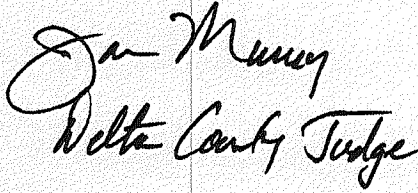 Jason Murray
Delta County Judge